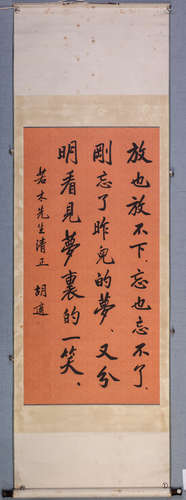 放也放不下、忘也忘不了、
剛忘了昨兒的夢、又分
明看見夢裏的一笑、
若木先生清正 胡適